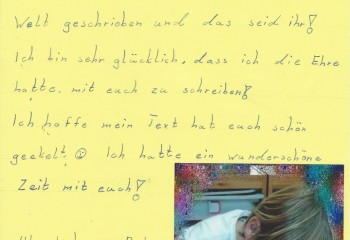 Welt geschrieben und das seid ihr!
Ich bin sehr glücklich, dass ich die Ehre
hatte mit euch zu schreiben!
Ich hoffe mein Text hat euch schön
geekelt. ☺ Ich hatte ein wunderschöne
Zeit mit euch!